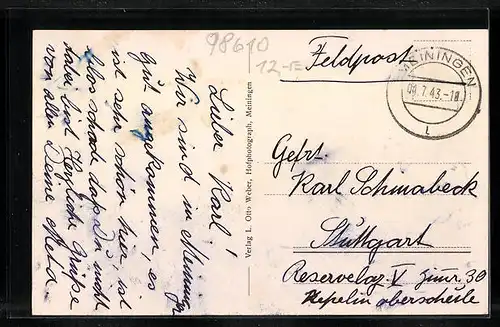 98610
12-E
Feldpost
MEININGEN
09.7.43.-18
Lieber Karl!
Wir sind in Meiningen
gut angekommen, es
ist sehr schön hier, ist
blos schade daß Du nicht
dabei bist. Herzliche Grüße
von allen Deine Meta.
Verlag L. Otto Weber, Hofphotograph, Meiningen
Gefrt.
Karl Schwabeck
Stuttgart
Reservelaz. V Zimr. 30